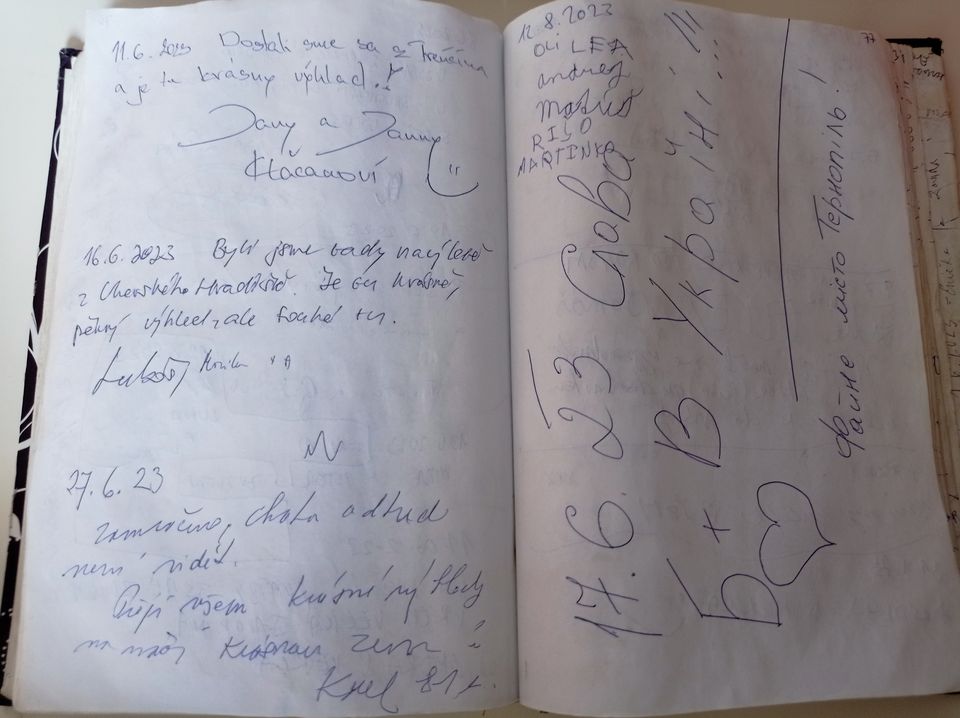 11.6.2023 Dostali sme sa z Trenčína
a je tu krásny výhľad..!
Jany a Janny
Kláčanovi
16.6.2023 Byli jsme tady na výletě
z Uherského Hradiště. Je tu krásně,
pěkný výhled, ale fouká tu.
Lukáš, Monika
27.6.23
zamračeno, Chata odtud
není vidět.
Přeji všem krásné výhledy
na naší krásnou zem
Karel 81 r.
12.8.2023
OLI LEA
andrej
Matúš
RIŠO
MARTINKA
17.6.23 Слава
Б + В Україні...!!!
файне місто Тернопіль!
77